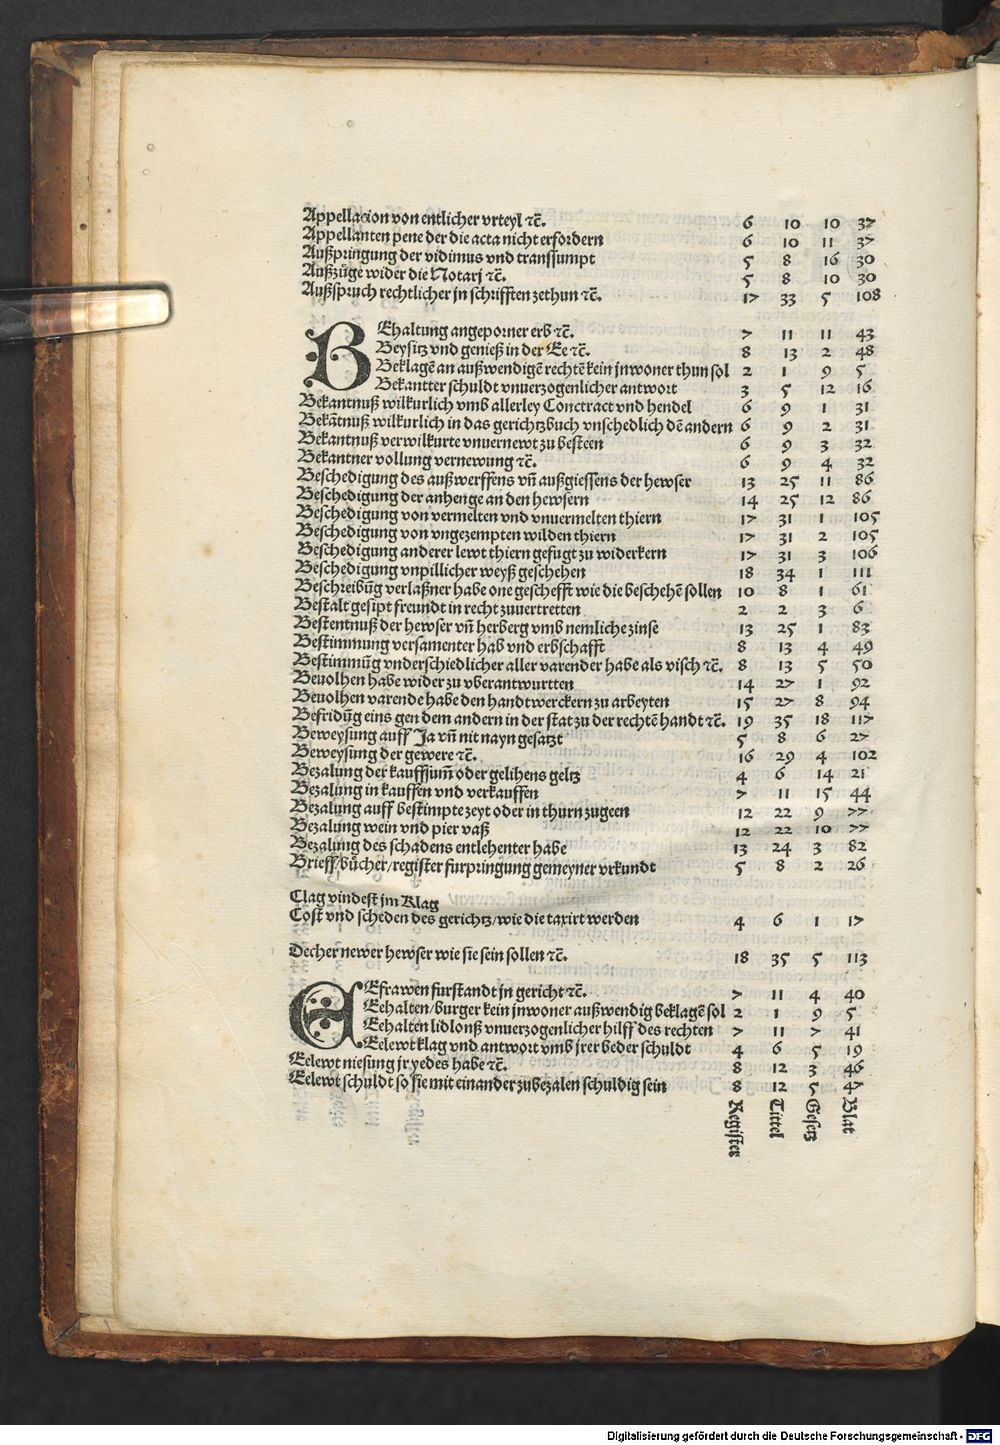 Appellacion von entlicher vrteyl ⁊c̃. 6 10 10 37
Appellanten pene der die acta nicht erfordern 6 10 11 37
Außpringung der vidimus vnd transsumpt 5 8 16 30
Außzüge wider die Notarj ⁊c̃. 5 8 10 30
Außspruch rechtlicher jn schrifften zethun ⁊c̃. 17 33 5 108
BEhaltung angeporner erb ⁊c̃. 7 11 11 43
Beysitz vnd genieß in der Ee ⁊c̃. 8 13 2 48
Beklagẽ an außwendigẽ rechtẽ kein jnwoner thun sol 2 1 9 5
Bekantter schuldt vnuerzogenlicher antwort 3 5 12 16
Bekantnuß wilkurlich vmb allerley Conctract vnd hendel 6 9 1 31
Bekãtnuß wilkurlich in das gerichtzbuch vnschedlich dẽ andern 6 9 2 31
Bekantnuß verwilkurte vnuernewt zu besteen 6 9 3 32
Bekantner vollung vernewung ⁊c̃. 6 9 4 32
Beschedigung des außwerffens vñ außgiessens der hewser 13 25 11 86
Beschedigung der anhenge an den hewsern 14 25 12 86
Beschedigung von vermelten vnd vnuermelten thiern 17 31 1 105
Beschedigung von vngezempten wilden thiern 17 31 2 105
Beschedigung anderer lewt thiern gefugt zu widerkern 17 31 3 106
Beschedigung vnpillicher weyß geschehen 18 34 1 111
Beschreibũg verlaßner habe one geschefft wie die beschehẽ sollen 10 8 1 61
Bestalt gesipt freundt in recht zuuertretten 2 2 3 6
Bestentnuß der hewser vñ herberg vmb nemliche zinse 13 25 1 83
Bestimmung versamenter hab vnd erbschafft 8 13 4 49
Bestimmũg vnderschiedlicher aller varender habe als visch ⁊c̃. 8 13 5 50
Beuolhen habe wider zu vberantwurtten 14 27 1 92
Beuolhen varende habe den handtwerckern zu arbeyten 15 27 8 94
Befridũg eins gen dem andern in der stat zu der rechtẽ handt ⁊c̃. 19 35 18 117
Beweysung auff Ja vñ nit nayn gesatzt 5 8 6 27
Beweysung der gewere ⁊c̃. 16 29 4 102
Bezalung der kauffsum̃ oder gelihens geltz 4 6 14 21
Bezalung in kauffen vnd verkauffen 7 11 15 44
Bezalung auff bestimpte zeyt oder in thurn zugeen 12 22 9 77
Bezalung wein vnd pier vaß 12 22 10 77
Bezalung des schadens entlehenter habe 13 24 3 82
Brieff/bücher/register furpringung gemeyner vrkundt 5 8 2 26
Clag vindest jm Klag
Cost vnd scheden des gerichtz/wie die taxirt werden 4 6 1 17
Decher newer hewser wie sie sein sollen ⁊c̃. 18 35 5 113
EEfrawen furstandt jn gericht ⁊c̃. 7 11 4 40
Eehalten/burger kein jnwoner außwendig beklagẽ sol 2 1 9 5
Eehalten lidlonß vnuerzogenlicher hilff des rechten 7 11 7 41
Eelewt klag vnd antwort vmb jrer beder schuldt 4 6 5 19
Eelewt niesung jr yedes habe ⁊c̃. 8 12 3 46
Eelewt schuldt so sie mit einander zubezalen schuldig sein 8 12 5 47
Register Tittel Gesetz Blat
Digitalisierung gefördert durch die Deutsche Forschungsgemeinschaft - DFG